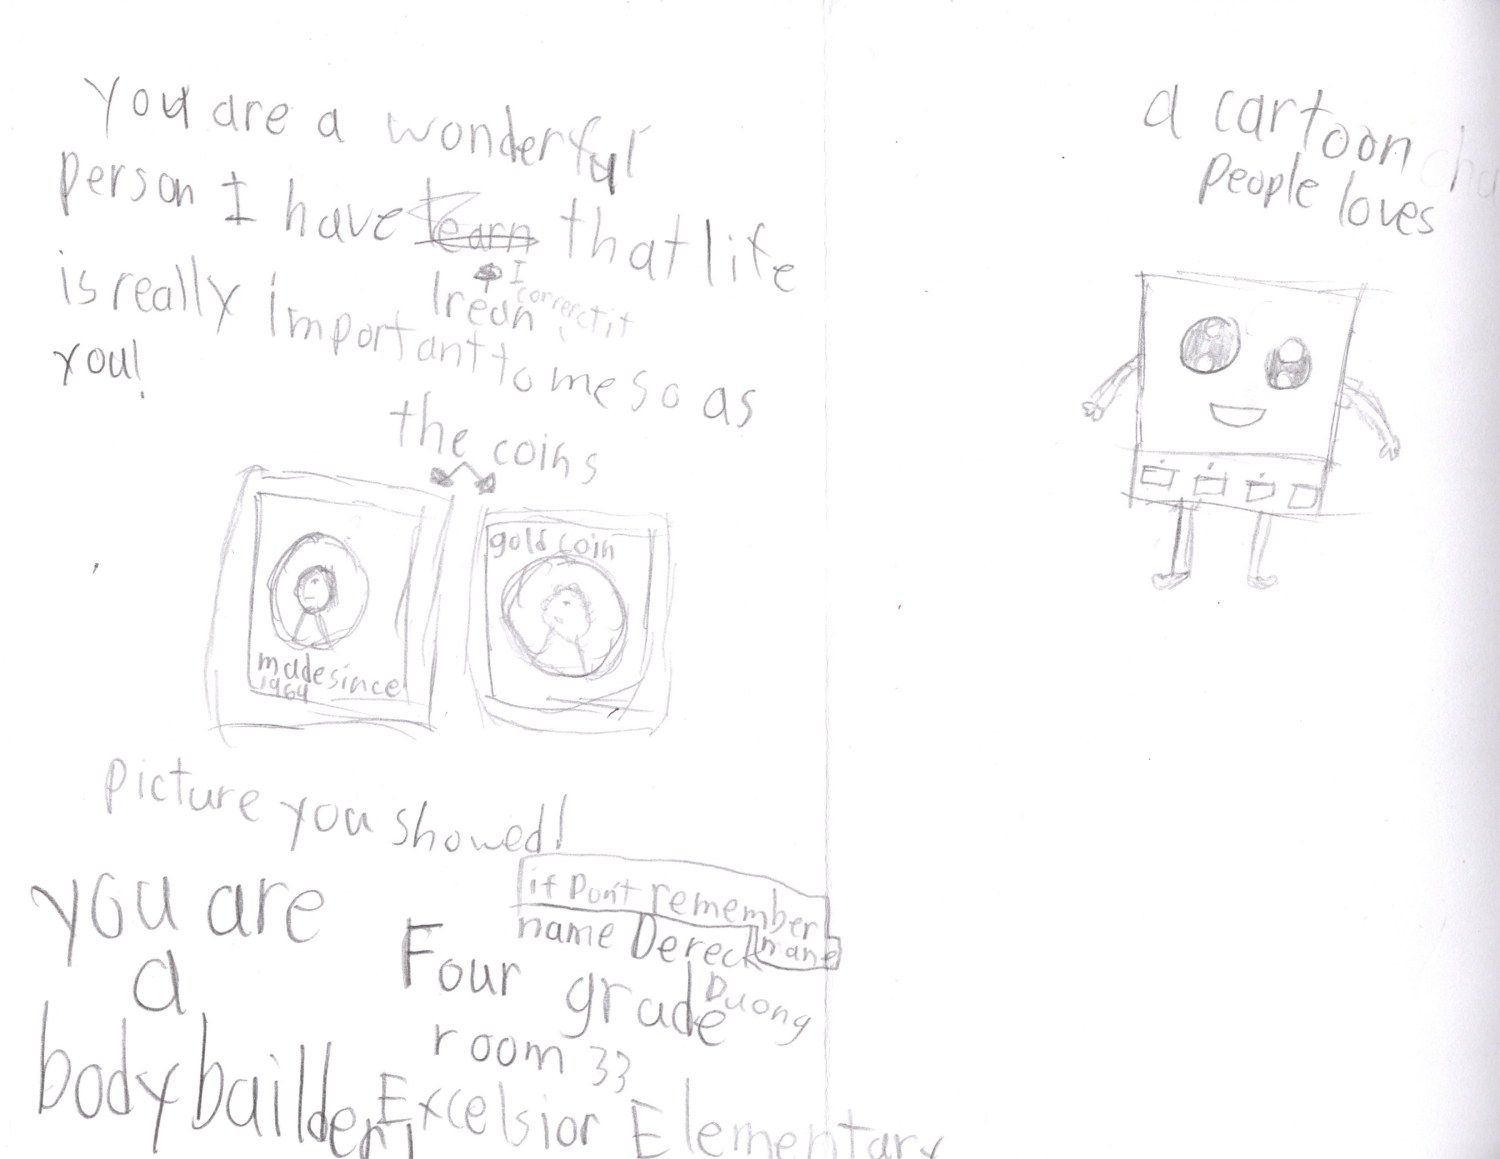 you are a wonderful
person I have tearn that life
I
correct it
lrean
is really important to me so as
you!
the coins
made since
1964
gold coin
picture you showed!
you are
a
body bailder!
if Don't remember
name Dereck
name
Duong
Four grade
room 33
Excelsior Elementary
a cartoon cha
people loves